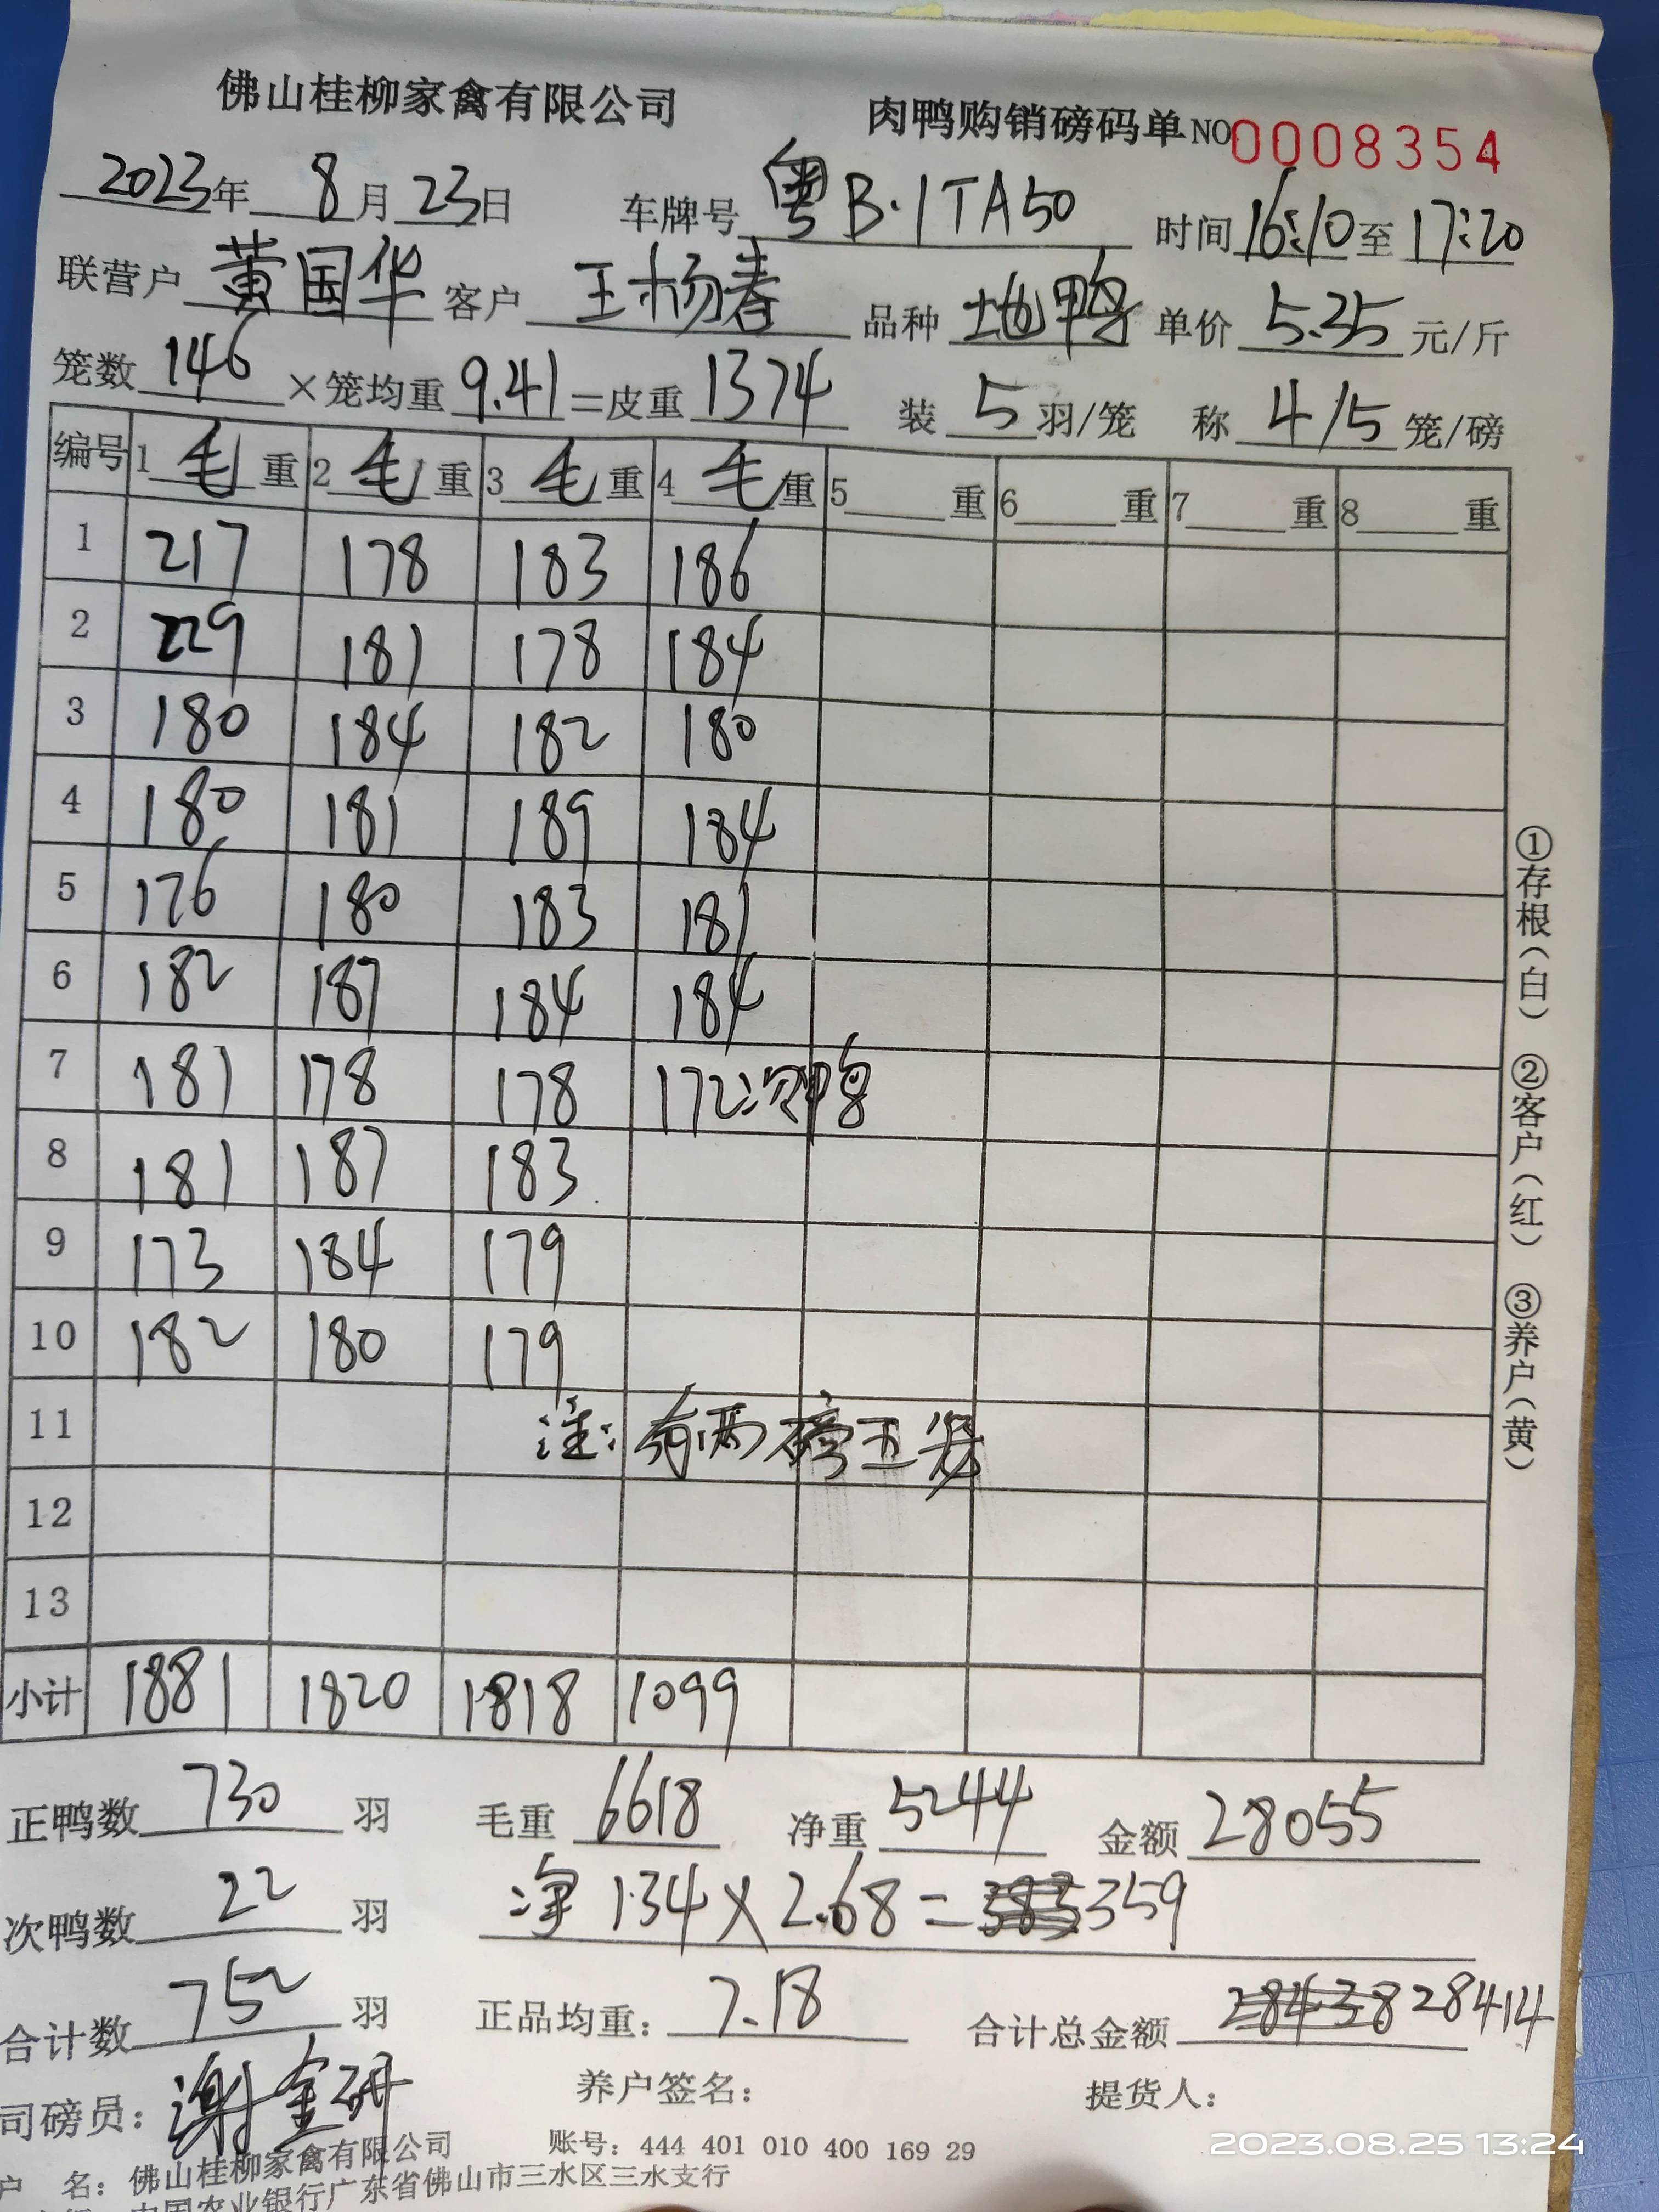 佛山桂柳家禽有限公司 肉鸭购销磅码单NO0008354
2023年 8月23日 车牌号 粤B·1TA50 时间16:10至17:20
联营户 黄国华 客户 王杨春 品种 土鸭 单价 5.35 元/斤
笼数 146 ×笼均重 9.41=皮重 1374 装 5 羽/笼 称 4/5 笼/磅
编号 1 毛 重 2 毛 重 3 毛 重 4 毛 重 5 重 6 重 7 重 8 重
1 217 178 183 186
2 229 181 178 184
3 180 184 182 180
4 180 181 189 184
5 176 180 183 181
6 182 187 184 184
7 181 178 178 172次鸭
8 181 187 183
9 173 184 179
10 182 180 179
11 注:有两磅五笼
12
13
小计 1881 1820 1818 1099
正鸭数 730 羽 毛重 6618 净重 5244 金额 28055
次鸭数 22 羽 净 134×2.68=383 359
合计数 752 羽 正品均重: 7.18 合计总金额 28438 28414
司磅员: 谢金研 养户签名: 提货人:
户 名: 佛山桂柳家禽有限公司 账号: 444 401 010 400 169 29
中国农业银行广东省佛山市三水区三水支行
①存根(白) ②客户(红) ③养户(黄)
2023.08.25 13:24